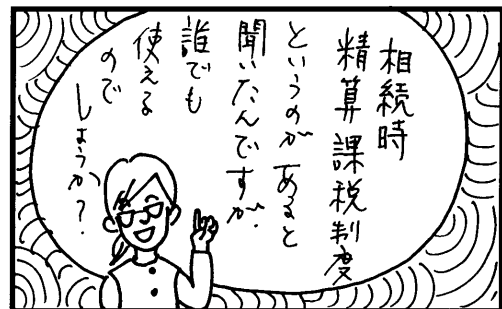 相続時
精算課税制度
というのがあると
聞いたんですが、
誰でも
使える
ので
しょうか?